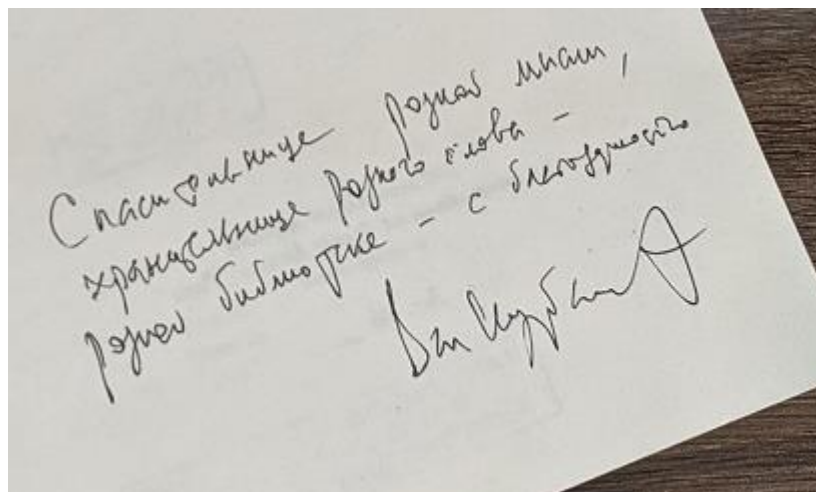 Спасительнице родной мысли,
хранительнице родного слова –
родной библиотеке – с благодарностью
Вал Курбатов